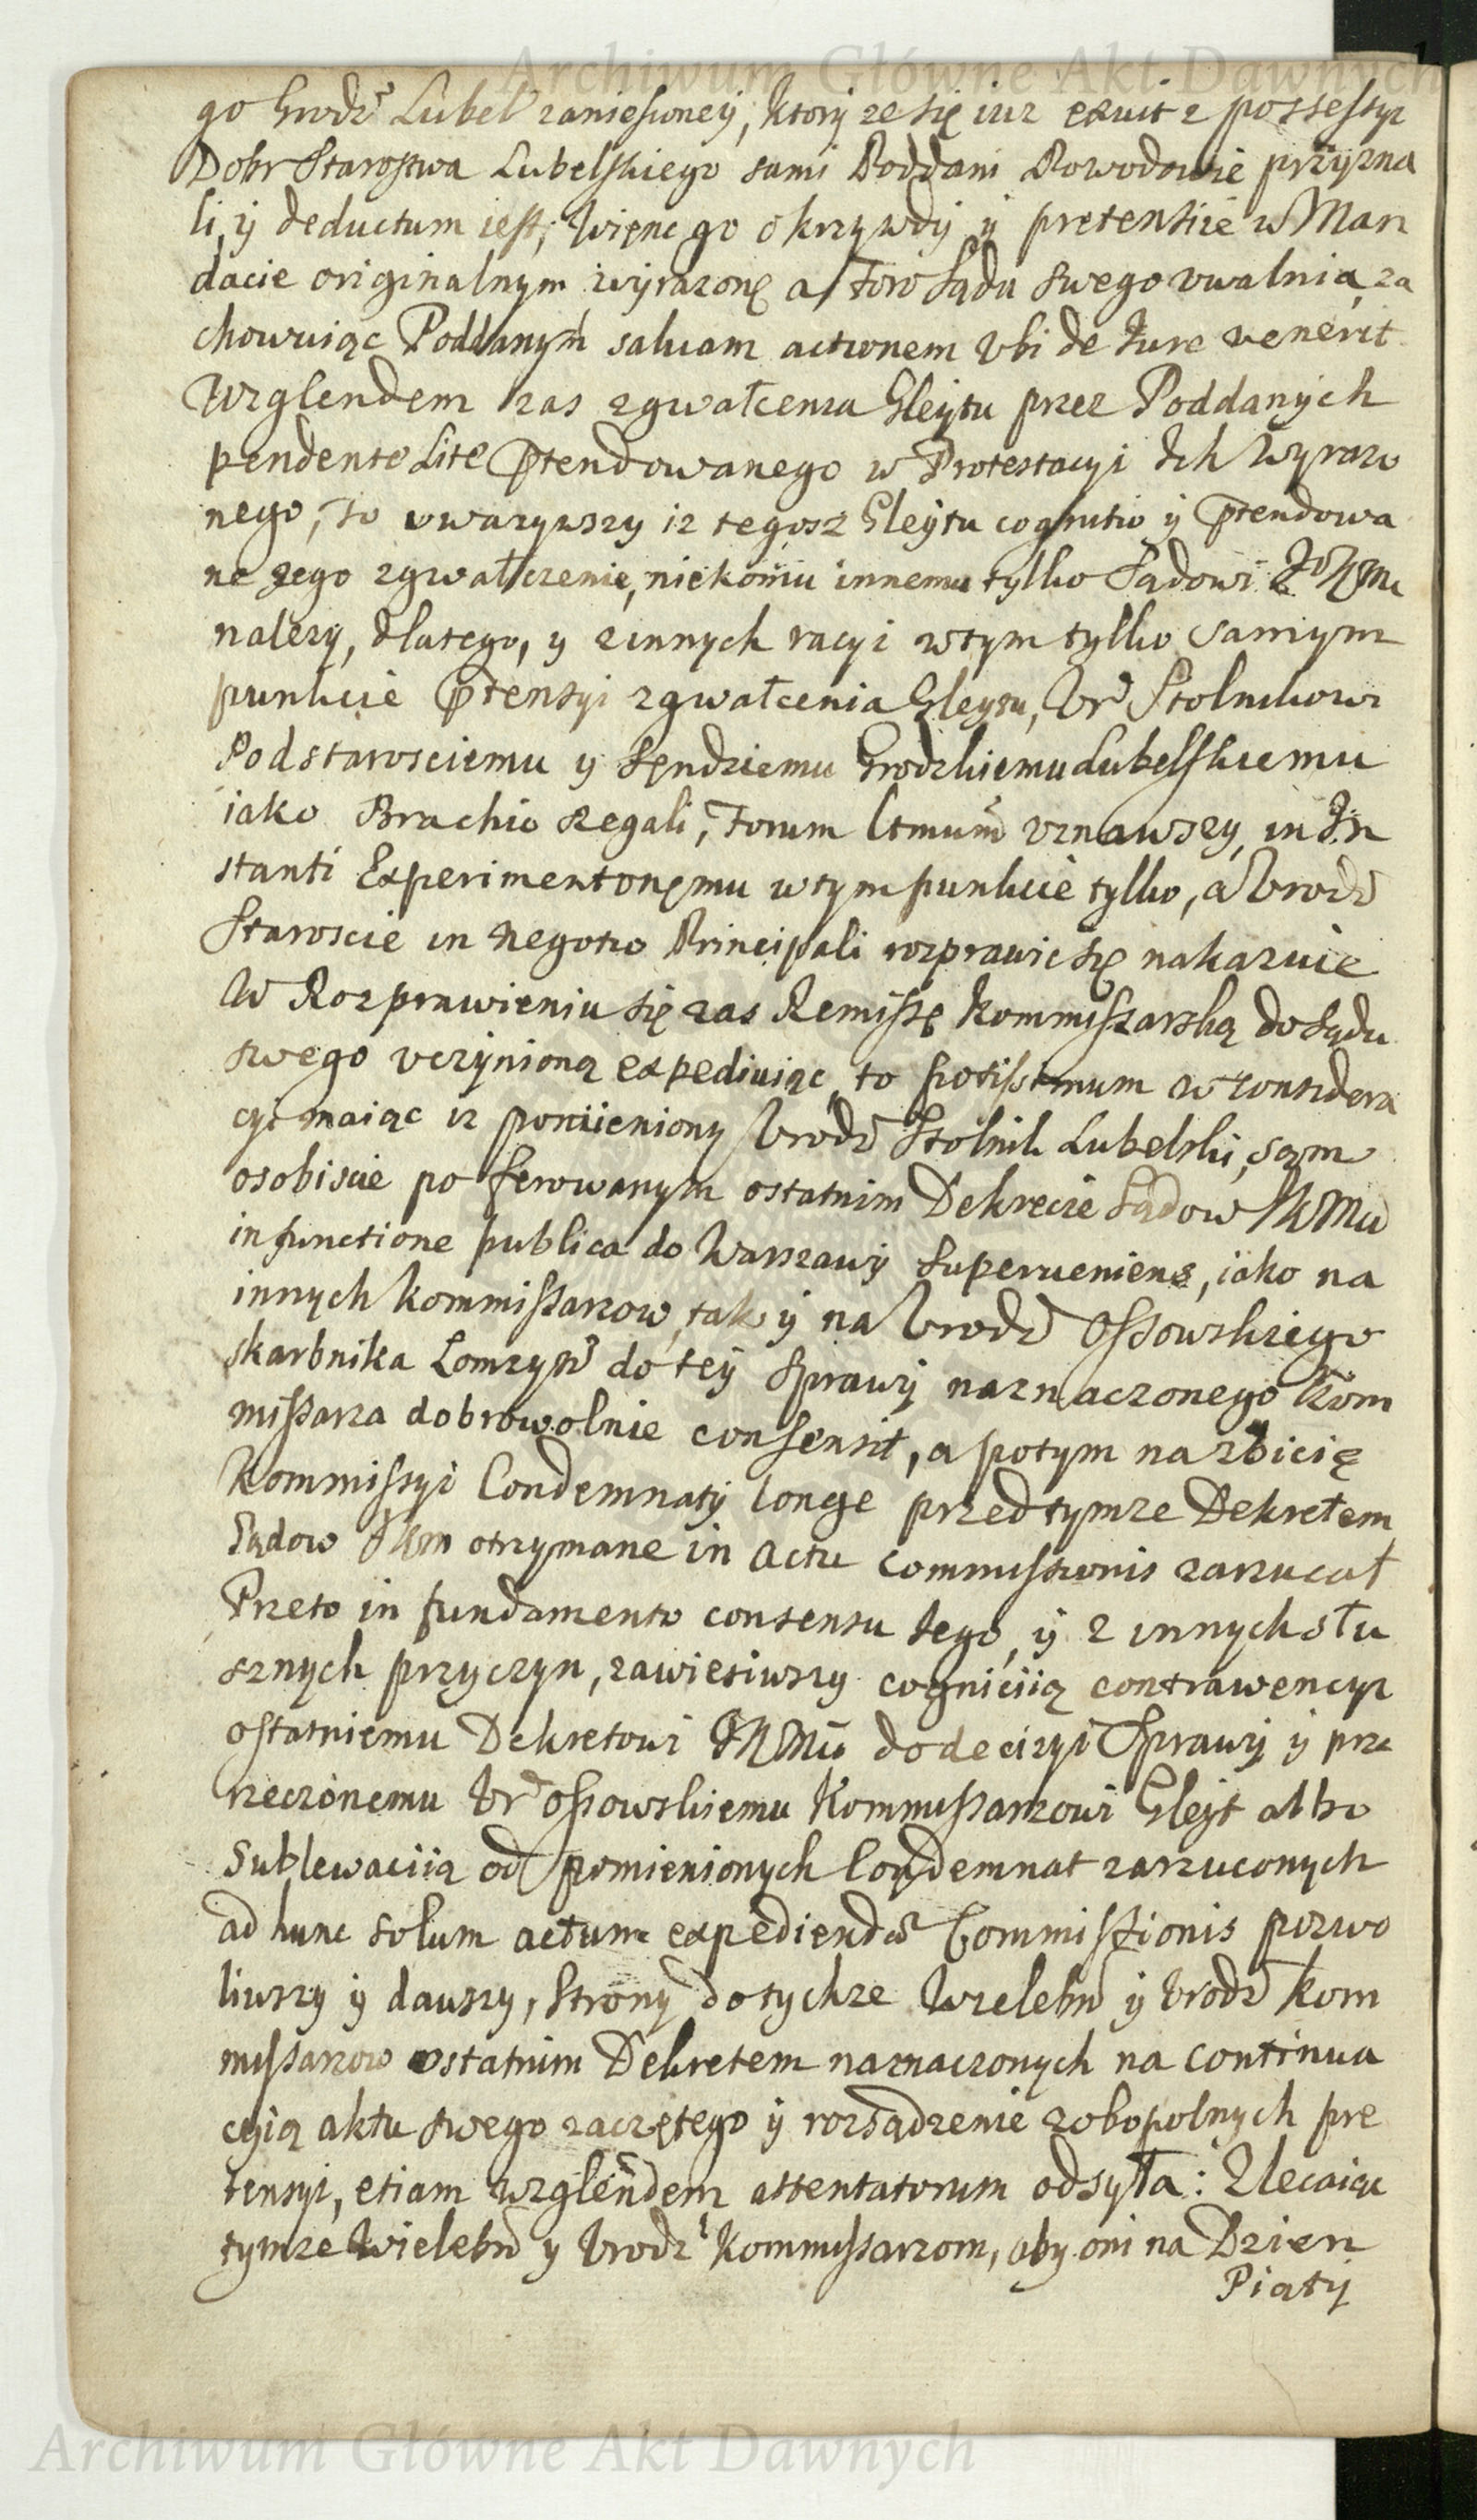 Archiwum Główne Akt Dawnych
go Grodz Lubel zaniesioney, ktory ze się iuz exuit z possessyi
Dobr Starostwa Lubelskiego sami Poddani Powodowie przyzna
li, ÿ deductum iest, więnc go o krzywdÿ ÿ pretensiie w Man
dacie originalnym wÿrazonę a Foro Sądu swego uwalnia, za
chowuiąc Poddanym salvam actionem Ubi de Jure venerit
Wzglendem zas zgwałcenia Gleÿtu przez Poddanÿch
pendente Lite Ptendowanego w Protestacyi Ich Wyrazo
nego, to uwazywszy iz tegosz Gleÿtu cognitio ÿ Ptendowa
ne Jego zgwałczenie, niekomu innemu tylko Sądowi JKMci
nalezy, dlatego, y z innych racyi w tym tylko samym
punkcie Ptensyi zgwałcenia Gleytu, Ur Stolnikowi
Podstarosciemu y Sęndziemu Grodzkiemu Lubelskiemu
iako Brachio Regali, Forum Ltmum uznawszy, in In
stanti Experimentonęmu w tym punkcie tylko, a Urodz
Staroscie in Negotio Principali rozprawic się nakazuie
W Rozprawieniu się zas Remissę Kommissarską do Sądu
swego uczÿnioną expediuiąc, to potissimum w considera
cyi maiąc iz pomieniony Urodz Stolnik Lubelski, sam
osobiscie po ferowanym ostatnim Dekrecie Sądow JKMci
in functione publica do Warszawÿ superveniens, iako na
innych Kommissarzow, tak ÿ na Urodz Ossowskiego
skarbnika Lomzyn do teÿ Sprawÿ naznaczonego Kom
missarza dobrowolnie consensit, a potym na zbicię
Kommissyi Condemnatÿ longe przed tymze Dekretem
Sądow JKM otrzymane in Actu Commissionis zarzucał
Przeto in fundamento consensu Jego, ÿ z innych słu
sznych przyczyn, zawiesiwszy cogniciią contrawencyi
ostatniemu Dekretowi JKMci do decizyi Sprawÿ ÿ prze
rzeczonemu Ur Ossowskiemu Kommissarzowi Gleÿt albo
Sublewaciią od pomienionych Condemnat zarzuconych
ad hunc solum actum expediendae Commissionis pozwo
liwszy ÿ dawszy, Strony do tychze Wielebn ÿ Urodz Kom
missarzow ostatnim Dekretem naznaczonych na continua
cyią aktu swego zaczętego ÿ rozsądzenie zobopolnych pre
tensyi, etiam wzglendem attentatorum odsyła: Zlecaiąc
tymze Wielebn y Urodz Kommissarzom, aby oni na Dzien
Piatÿ
Archiwum Główne Akt Dawnych